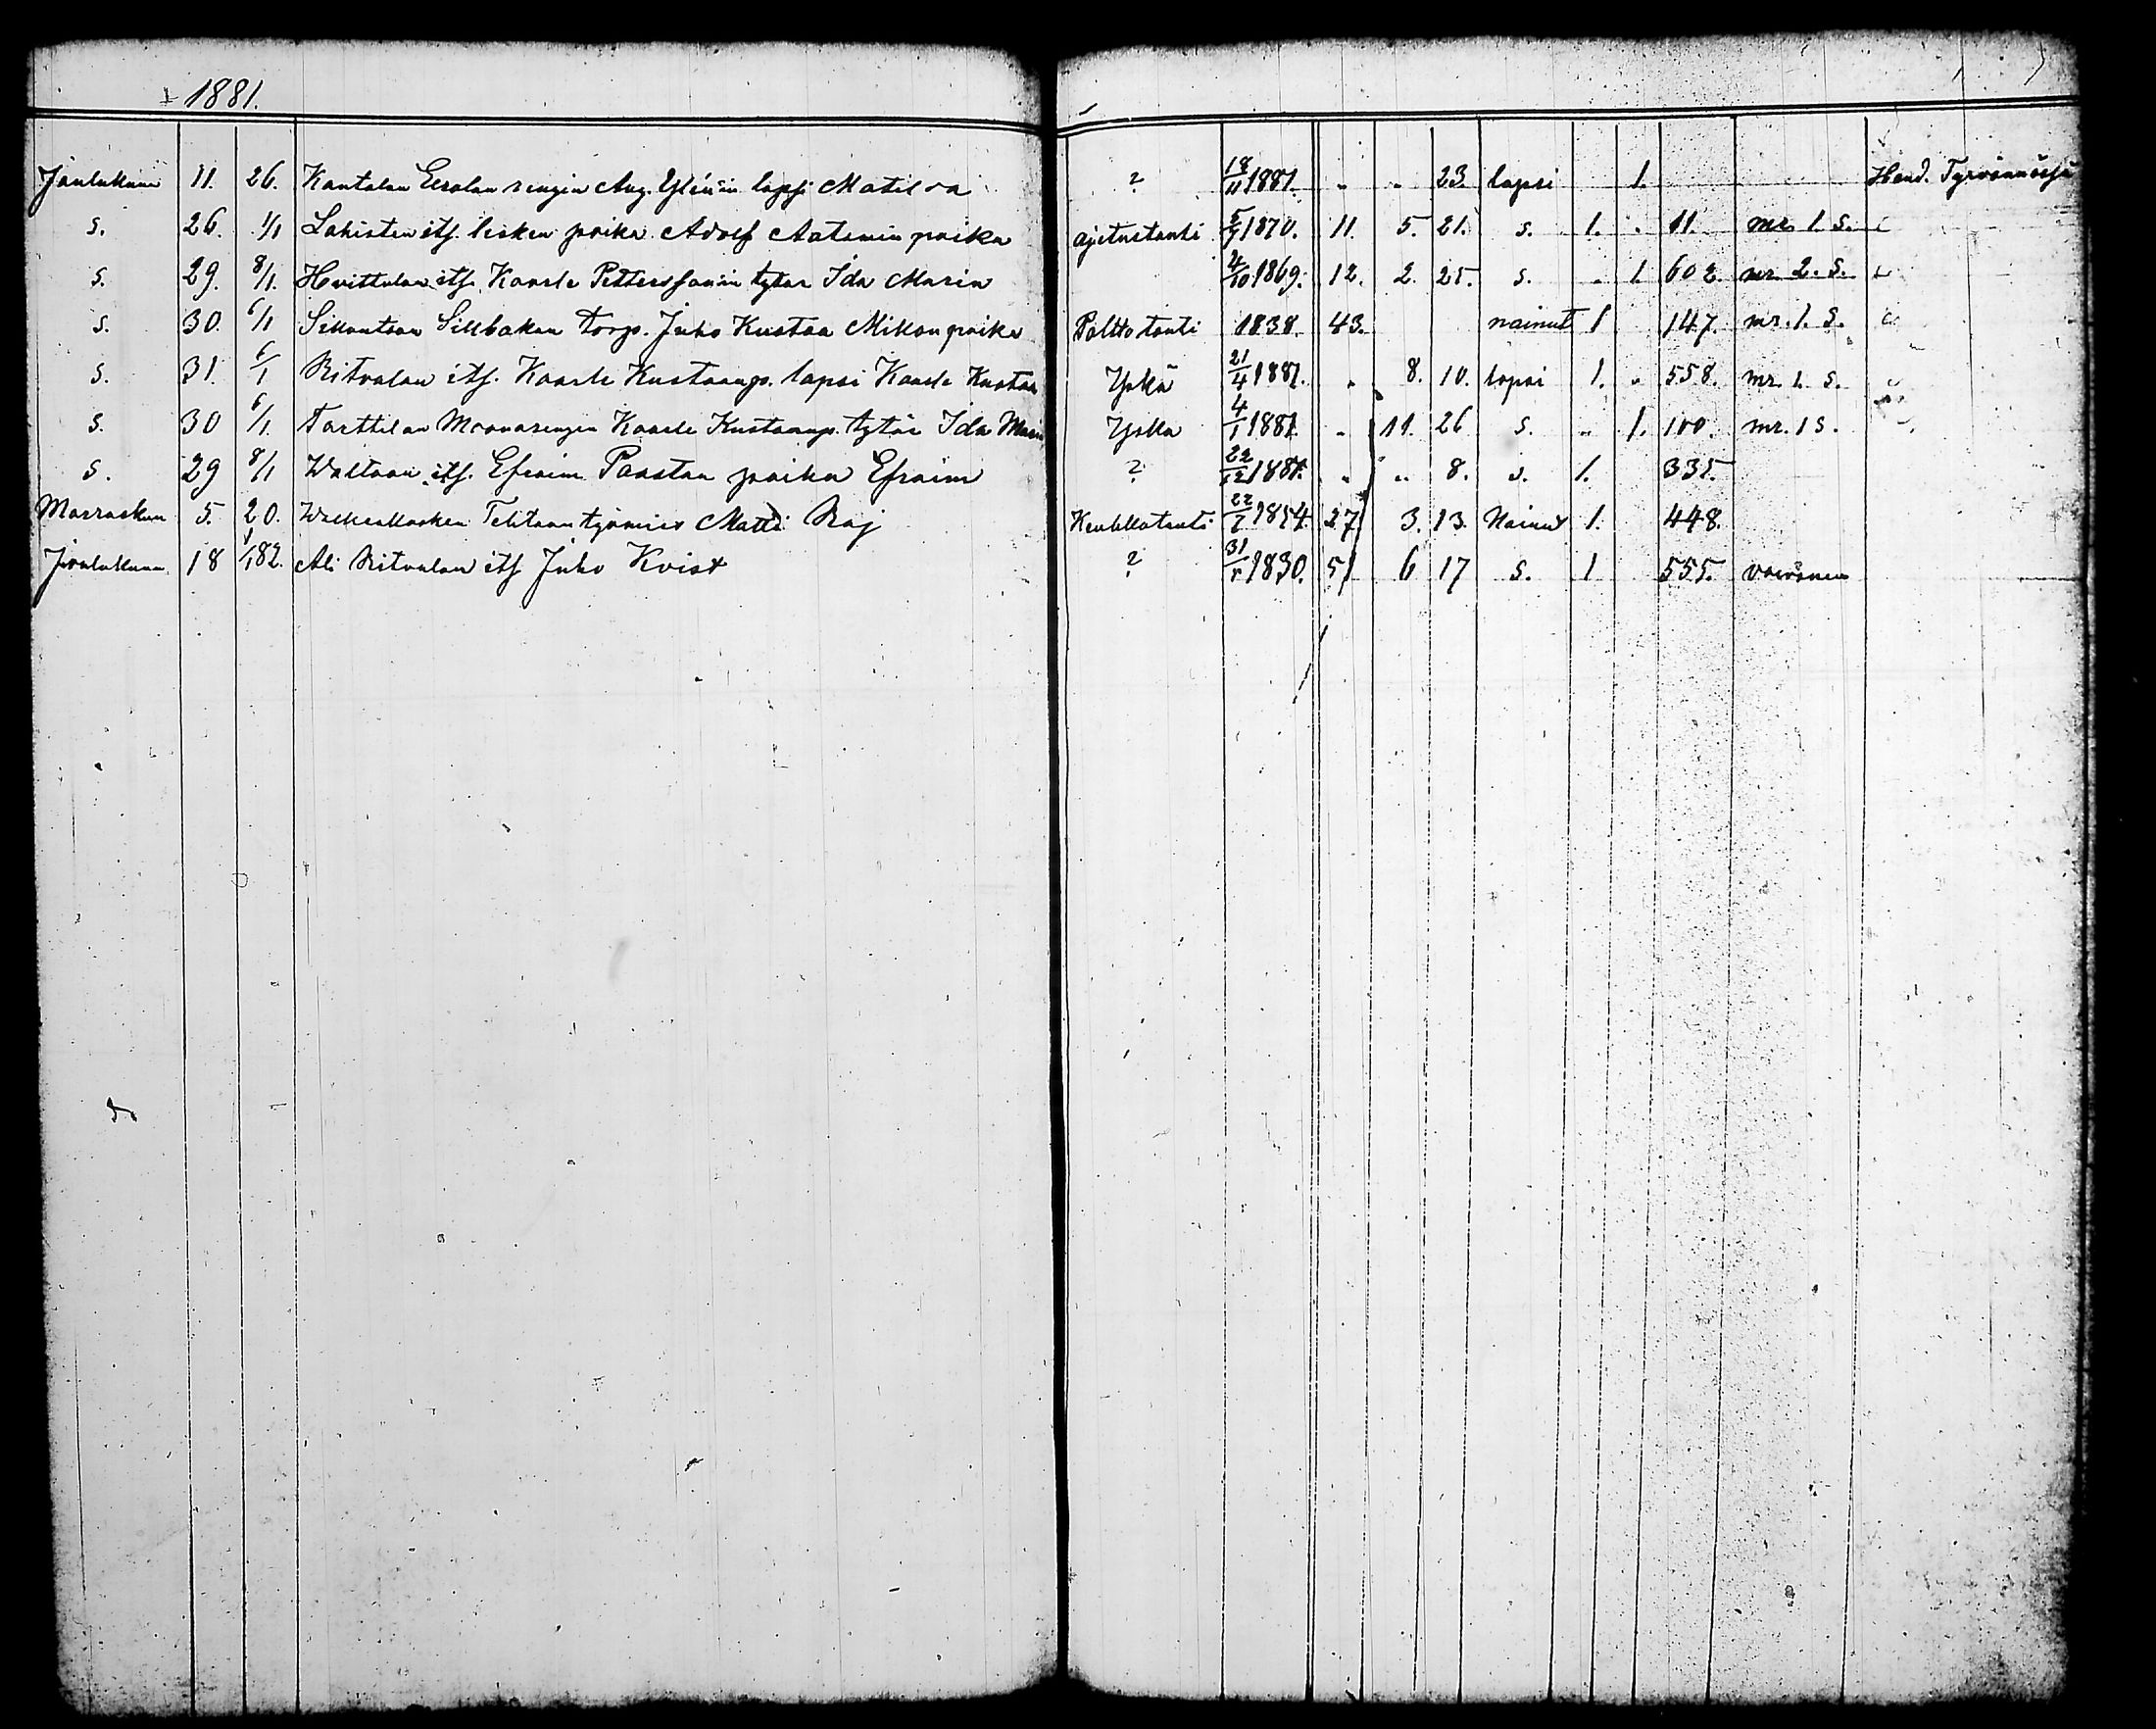 1881.
Joulukuu 11. 26. Kantalan Eerolan rengin Aug. Ylénin lapsi Matilda ? 18/11 1881. „ „ 23. lapsi 1. Haud. Tyrvännössä
s. 26. 1/1 Lahisten its. lesken poika Adolf Aatamin poika ajetustauti 5/7 1870. 11. 5. 21. s. 1. „ 11. mr. 1. s.
s. 29. 8/1. Hvittulan its. Kaarle Petterssonin tytar Ida Maria 4/10 1869. 12. 2. 25. s. „ 1. 602. mr. 2. s.
s. 30. 6/1 Sillbakan torp. Juho Kustaa Mikonpoika Polttotauti 1838. 43. nainut 1 147. mr. 1. s.
s. 31. 6/1 Ritvalan its. Kaarle Kustaanp. lapsi Kaarle Kustaa Yskä 21/4 1881. „ 8. 10. lapsi 1. „ 558. mr. 1. s.
s. 30 6/1. Tarttilan Moonarengin Kaarle Kustaanp. tytär Ida Maria Yskä 4/1 1881 „ 11. 26 s. „ 1. 100. mr. 1 s.
s. 29 8/1 Waltaan its. Efraim Paastan poika Efraim ? 22/12 1881. „ „ 8. s. 1. 335.
Marraskuu 5. 20. Tehtaan työmies Matti Raj Keuhkotauti 22/7 1854. 27 3. 13. Nainut 1. 448.
Joulukuu 18 1/1 82. Ali Ritvalan its Juho Kvist ? 31/5 1830. 51 6 17 s. 1 555. vaivanen